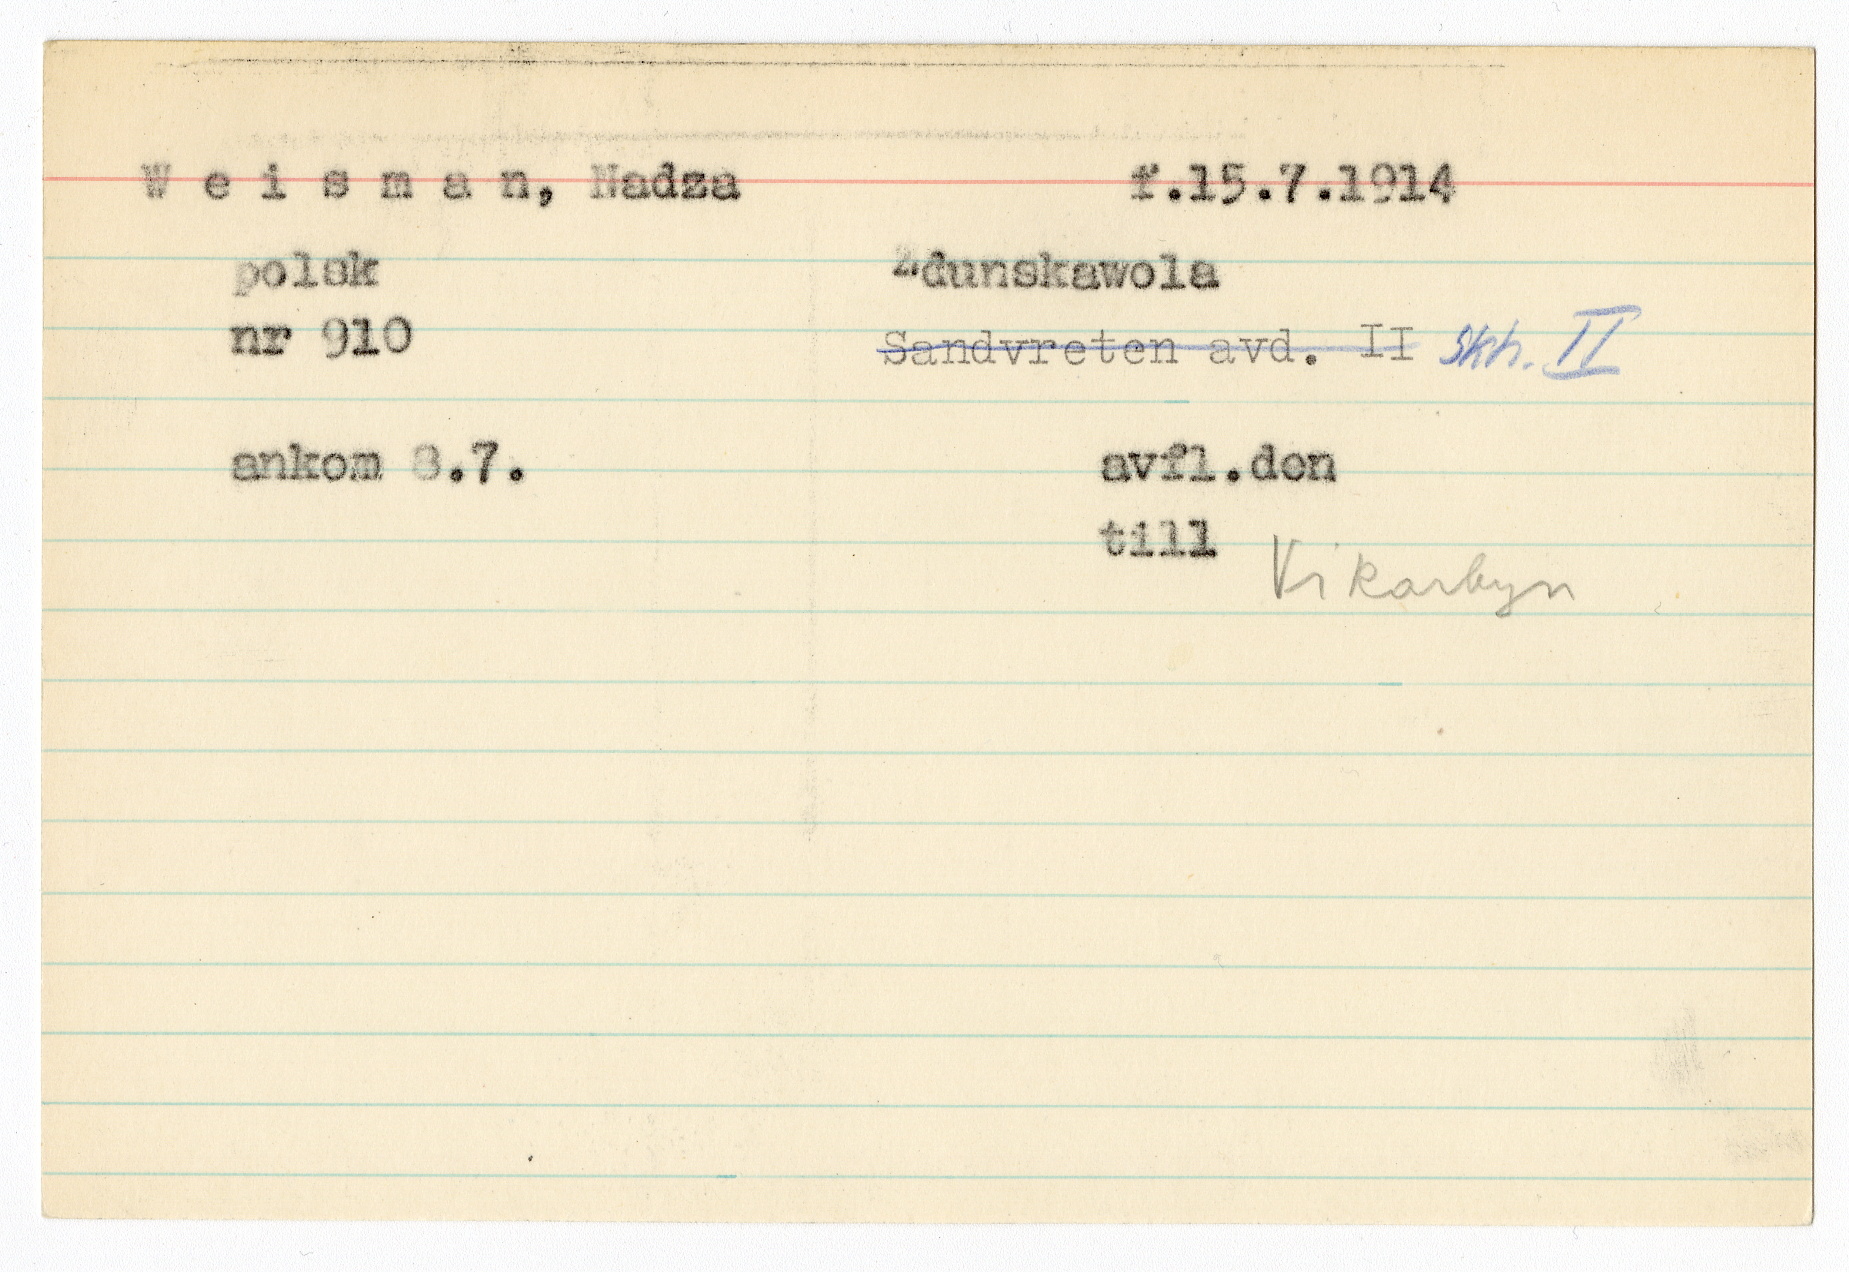 W e i s m a n, Nadza f.15.7.1914
polsk Zdunskawola
nr 910 Sandvreten avd. II skh. II
ankom 8.7. avfl.den
till Vikarbyn